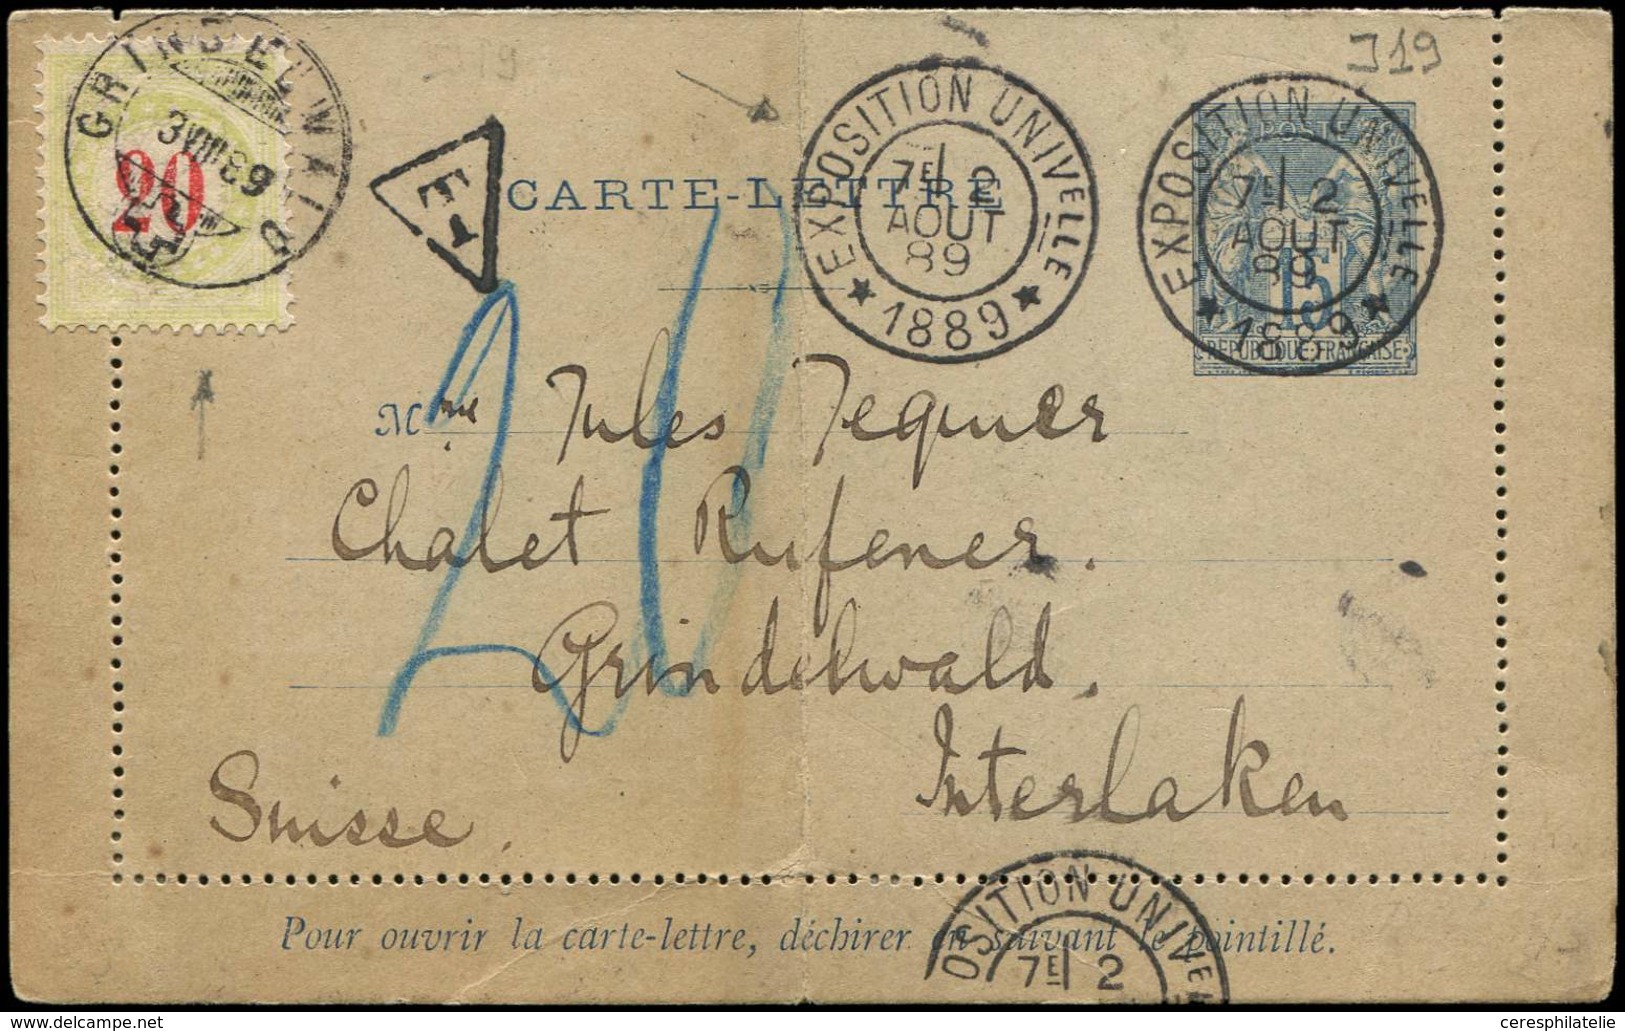 J19
GRINDELWALD
3 VIII 89
20
T
CARTE-LETTRE
EXPOSITION UNIVELLE
7E 2
AOUT
89
★ 1889 ★
EXPOSITION UNIVELLE
7E 2
AOUT
89
★ 1889 ★
15
REPUBLIQUE FRANÇAISE
20
Mme Jules Tequner
Chalet Rufener.
Grindelwald.
Interlaken
Suisse.
Pour ouvrir la carte-lettre, déchirer en suivant le pointillé.
OSITION UNIVE
7E 2
ceresphilatelie